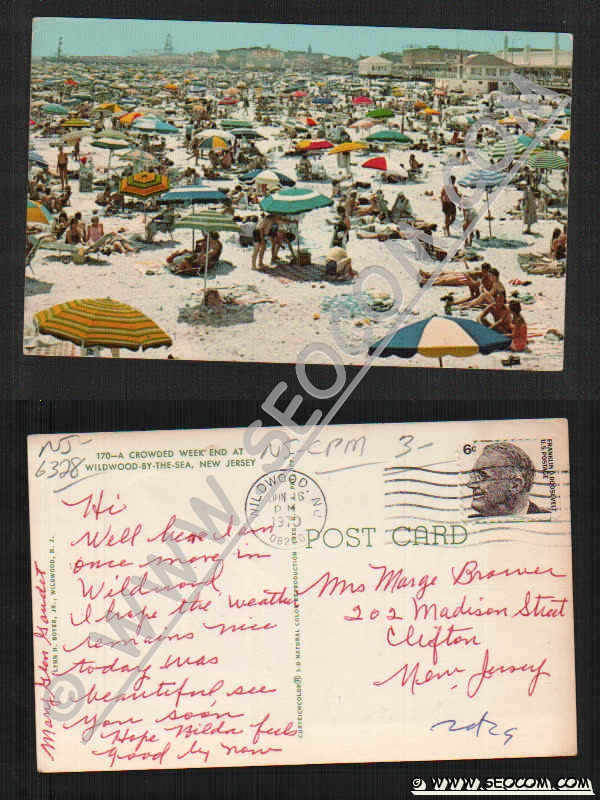 NJ-
6328
NJ-CPM 3-
170—A CROWDED WEEK END AT
WILDWOOD-BY-THE-SEA, NEW JERSEY
WILDWOOD, NJ
PM
1970
6¢
FRANKLIN D. ROOSEVELT
U.S. POSTAGE
POST CARD
Hi
Well here I am
once more in
Wildwood
I hope the weather
remains nice
today was
beautiful, see
you soon,
Hope Hilda feels
good by now
Mary Glen
LYNN H. BOYER, JR., WILDWOOD, N. J.
CURTEICHCOLOR® 3-D NATURAL COLOR REPRODUCTION
Mrs Marge Brower
202 Madison Street
Clifton
New Jersey
© WWW.SEOCOM.COM
© WWW.SEOCOM.COM